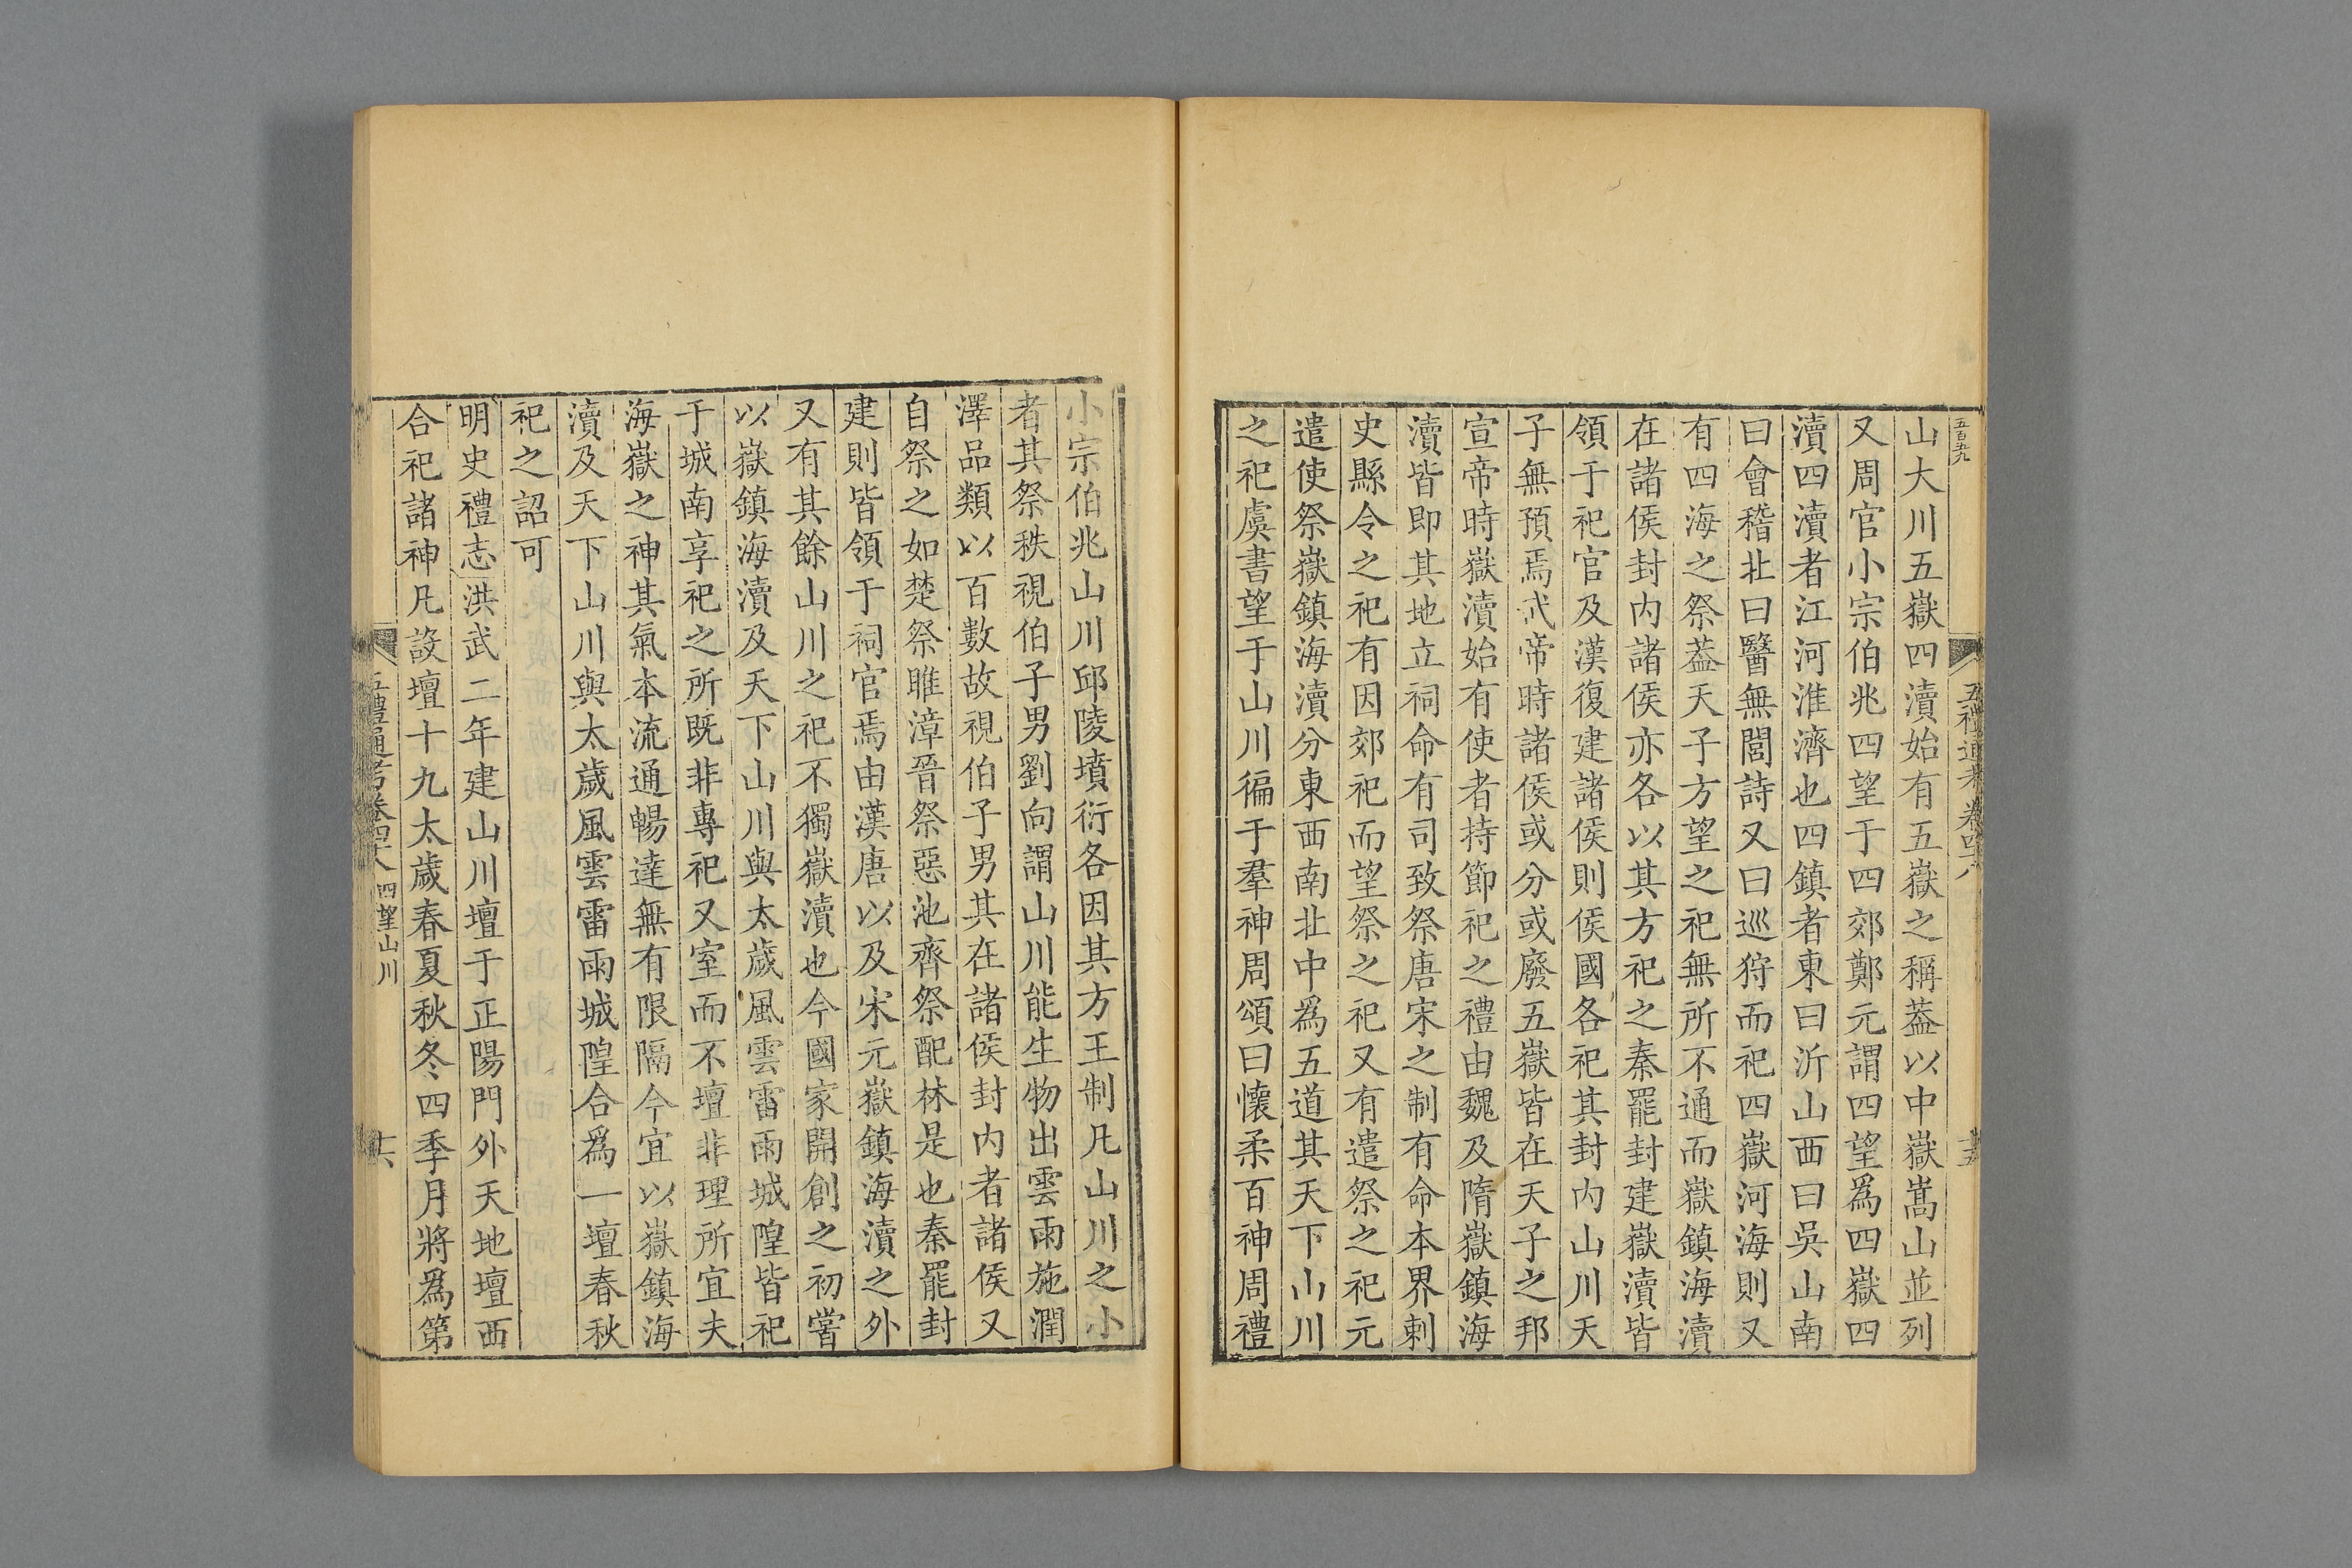 五百九
五禮通考卷四十八
十五
山大川五嶽四瀆始有五嶽之稱葢以中嶽嵩山並列
又周官小宗伯兆四望于四郊鄭元謂四望爲四嶽四
瀆四瀆者江河淮濟也四鎮者東曰沂山西曰吳山南
曰會稽北曰醫無閭詩又曰巡狩而祀四嶽河海則又
有四海之祭葢天子方望之祀無所不通而嶽鎮海瀆
在諸侯封内諸侯亦各以其方祀之秦罷封建嶽瀆皆
領于祀官及漢復建諸侯則侯國各祀其封内山川天
子無預焉武帝時諸侯或分或廢五嶽皆在天子之邦
宣帝時嶽瀆始有使者持節祀之禮由魏及隋嶽鎮海
瀆皆即其地立祠命有司致祭唐宋之制有命本界刺
史縣令之祀有因郊祀而望祭之祀又有遣祭之祀元
遣使祭嶽鎮海瀆分東西南北中爲五道其天下山川
之祀虞書望于山川徧于羣神周頌曰懷柔百神周禮
小宗伯兆山川邱陵墳衍各因其方王制凡山川之小
者其祭秩視伯子男劉向謂山川能生物出雲雨施潤
澤品類以百數故視伯子男其在諸侯封内者諸侯又
自祭之如楚祭睢漳晉祭惡池齊祭配林是也秦罷封
建則皆領于祠官焉由漢唐以及宋元嶽鎮海瀆之外
又有其餘山川之祀不獨嶽瀆也今國家開創之初嘗
以嶽鎮海瀆及天下山川與太歲風雲雷雨城隍皆祀
于城南享祀之所既非專祀又室而不壇非理所宜夫
海嶽之神其氣本流通暢達無有限隔今宜以嶽鎮海
瀆及天下山川與太歲風雲雷雨城隍合爲一壇春秋
祀之詔可
明史禮志洪武二年建山川壇于正陽門外天地壇西
合祀諸神凡設壇十九太歲春夏秋冬四季月將爲第
五禮通考卷四十八 四望山川
十六